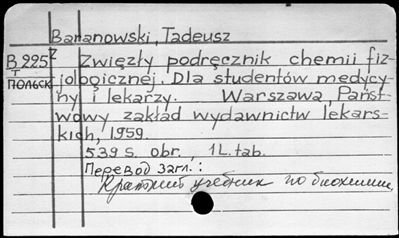 Baranowski, Tadeusz
B 225 Z Zwięzły podręcznik chemii fiz-
T jologicznej. Dla studentów medycy-
польск ny i lekarzy. Warszawa, Państ-
wowy zakład wydawnictw lekars-
kich, 1959.
539 s. obr., 1 L. tab.
Перевод загл.:
Краткий учебник по биохимии.